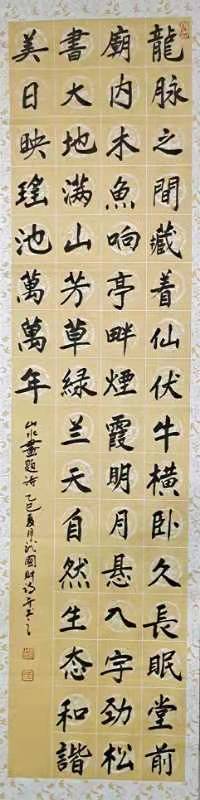 龍脉之間藏着仙伏牛橫卧久長眠堂前
廟内木魚响亭畔煙霞明月悬入字劲松
書大地满山芳草緑兰天自然生态和諧
美日映瑤池萬萬年
山水畫題诗 乙巳夏月 國財